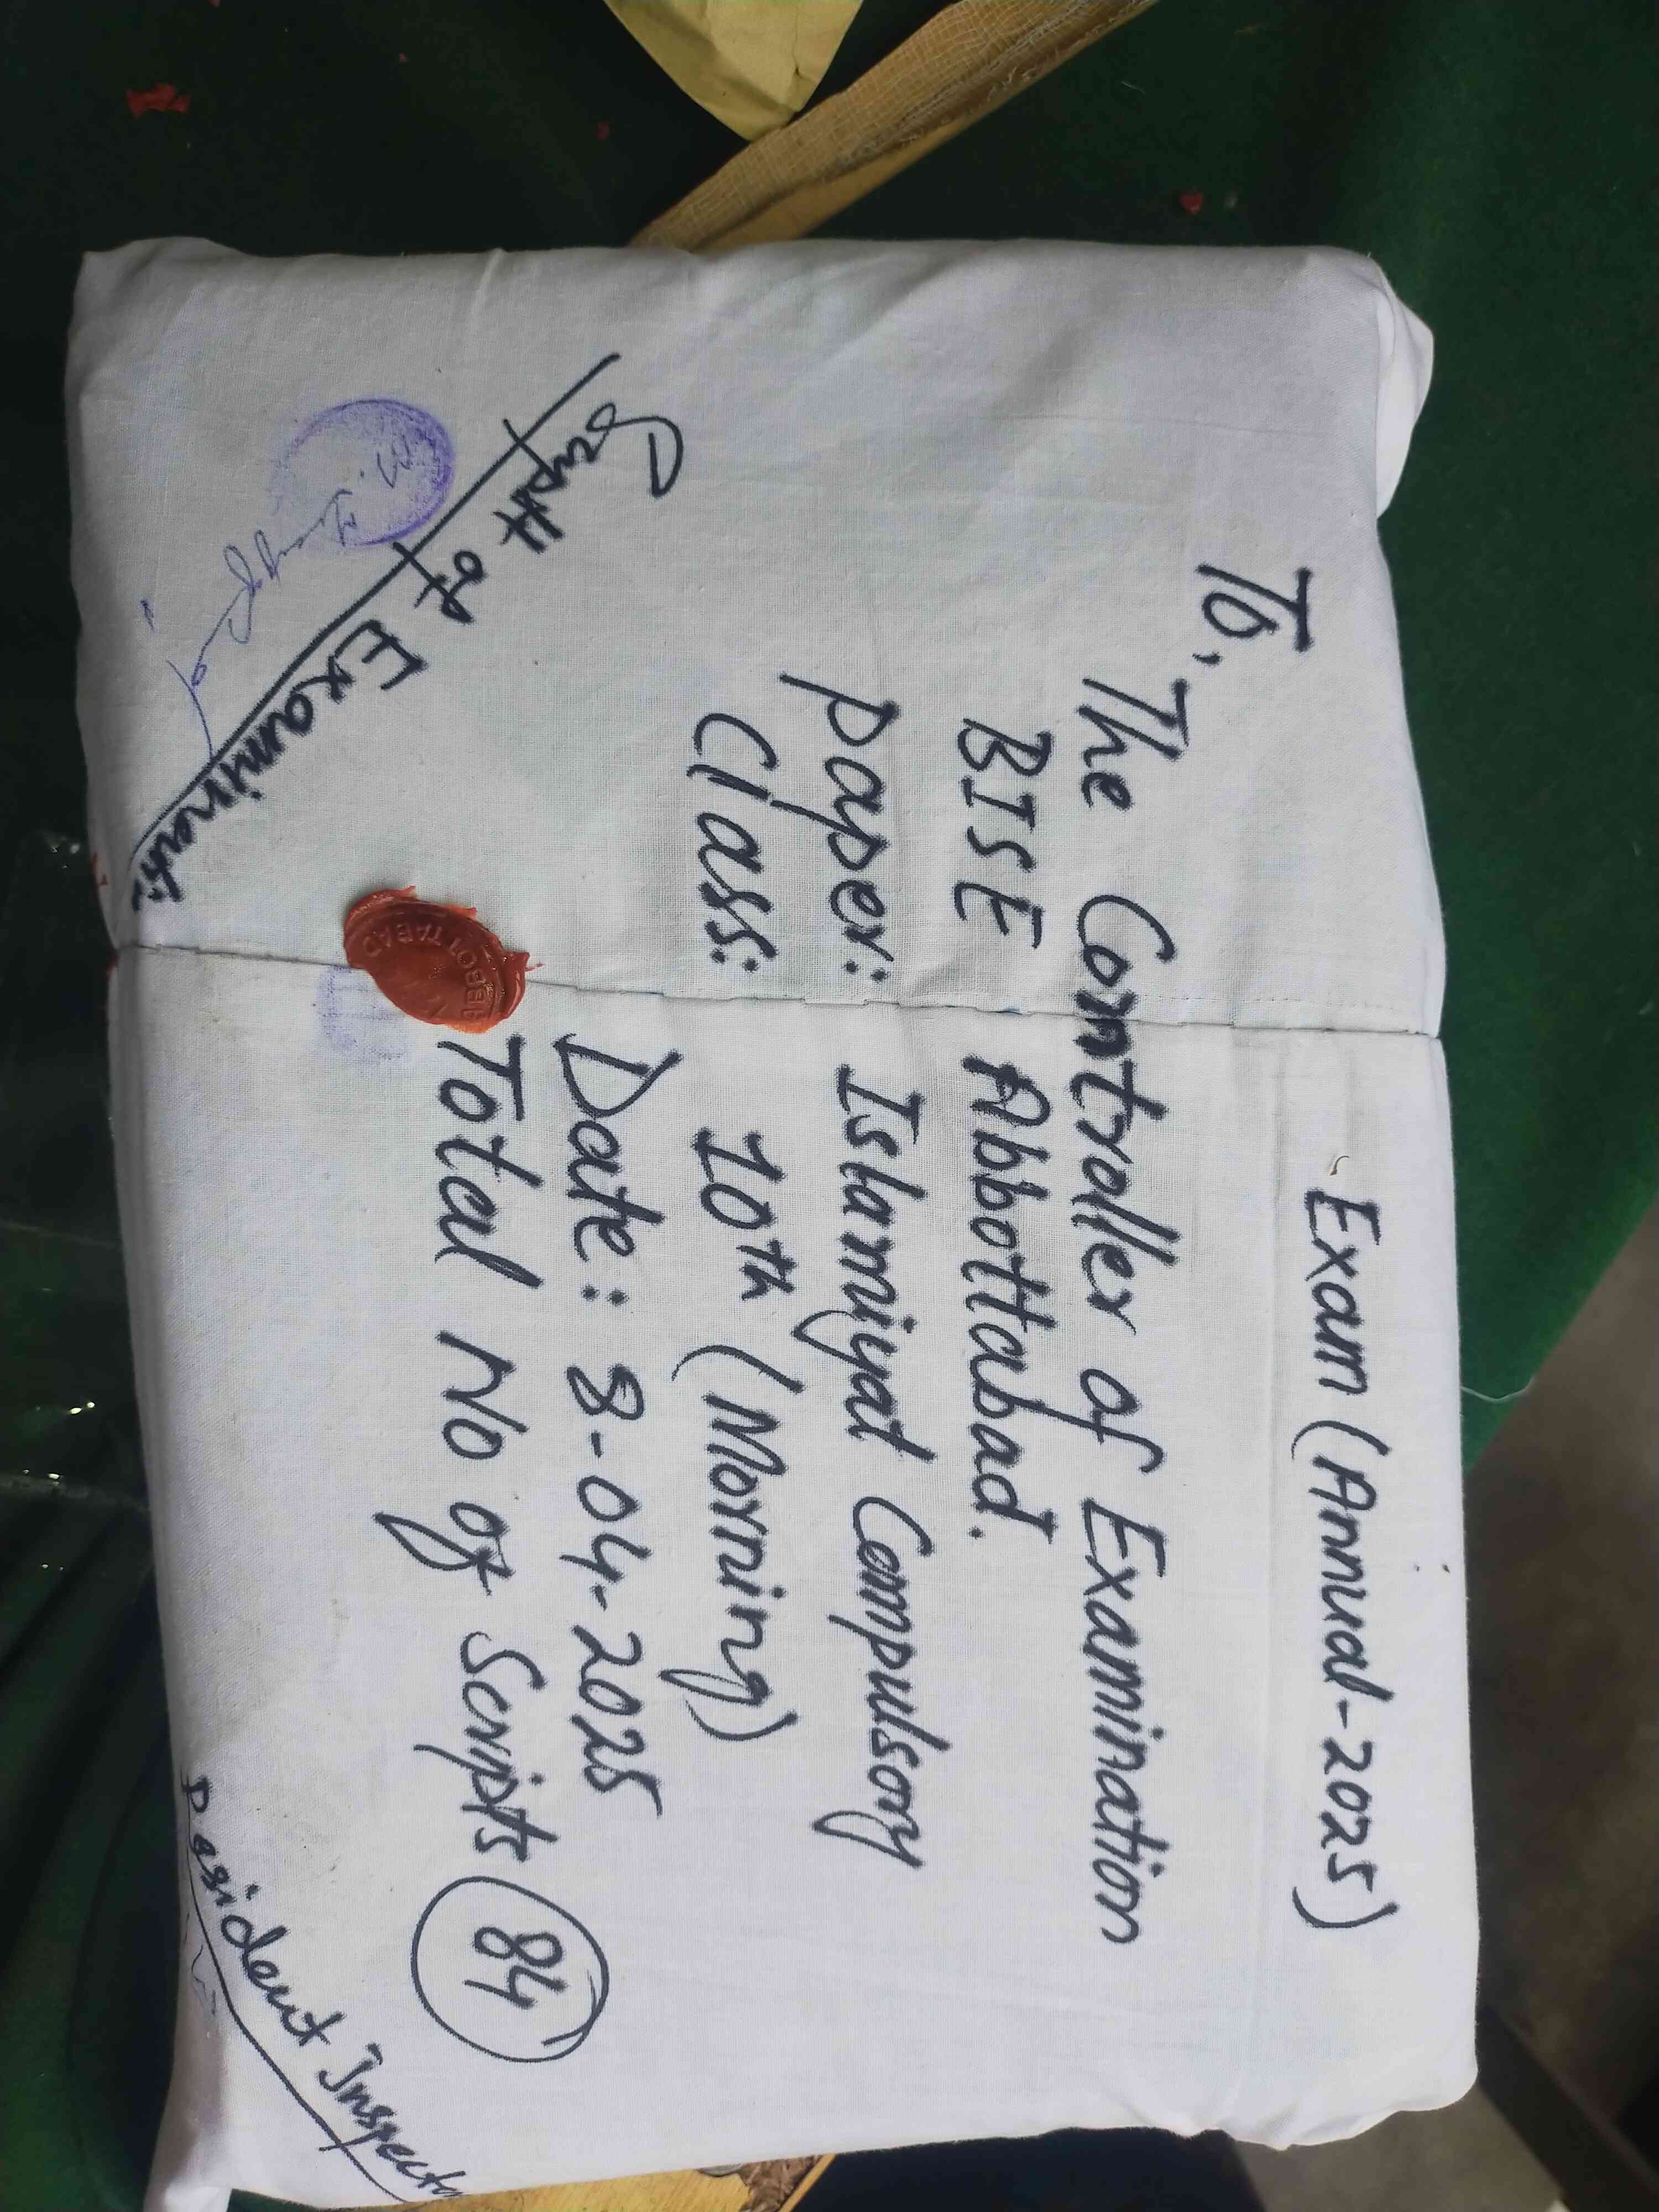 Exam (Annual-2025)
To,
The Controller of Examination
BISE Abbottabad.
Paper: Islamiyat Compulsory
Class: 10th (Morning)
Date: 8-04-2025
Total No of Scripts 84
Supdt of Examinent:
Resident Inspector
ABBOTTABAD